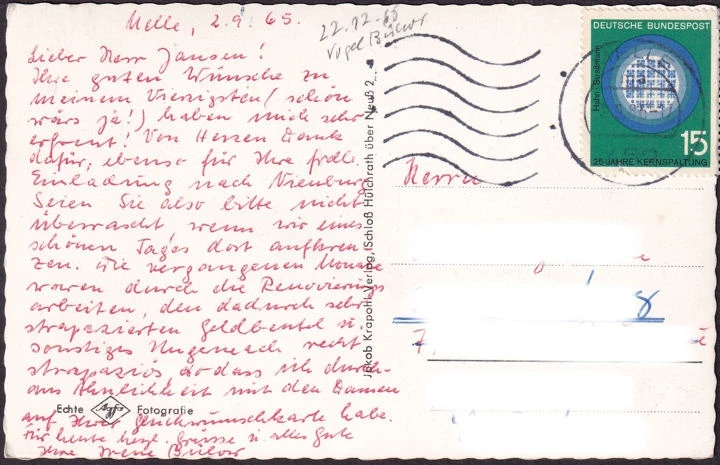 Melle, 2.9.65.
Lieber Herr Jansen!
Ihre guten Wünsche zu
meinem Vierzigsten (schön
wärs ja!) haben mich sehr
erfreut! Von Herzen Dank
dafür, ebenso für Ihre frdle.
Einladung nach Nienburg
Seien Sie also bitte nicht
überrascht, wenn wir eines
schönen Tages dort aufkreu-
zen. Die vergangenen Monate
waren durch die Renovierungs
arbeiten, den dadurch sehr
strapazierten Geldbeutel u.
sonstiges Ungemach recht
strapaziös, so dass ich durch-
aus Ähnlichkeit mit den Damen
auf Ihrer Glückwunschkarte habe.
Für heute herzl. Grüsse u. alles Gute
Ihre Irene Bülow
Echte Agfa Fotografie
22.12.65
Vogel Bülow
Jakob Krapohl-Verlag, Schloß Hülchrath über Neuß 2
DEUTSCHE BUNDESPOST
Hahn · Straßmann
15
25 JAHRE KERNSPALTUNG
Herrn
7